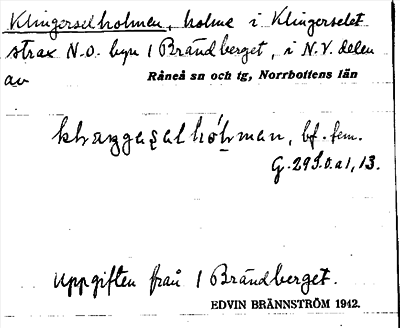 Klingerselholmen, holme i Klingerselet
strax N.O. byn 1 Brändberget, i N.V. delen
av Råneå sn och tg, Norrbottens län
bf. fem.
G. 295.0.a1, 13.
Uppgiften från 1 Brändberget.
EDVIN BRÄNNSTRÖM 1942.